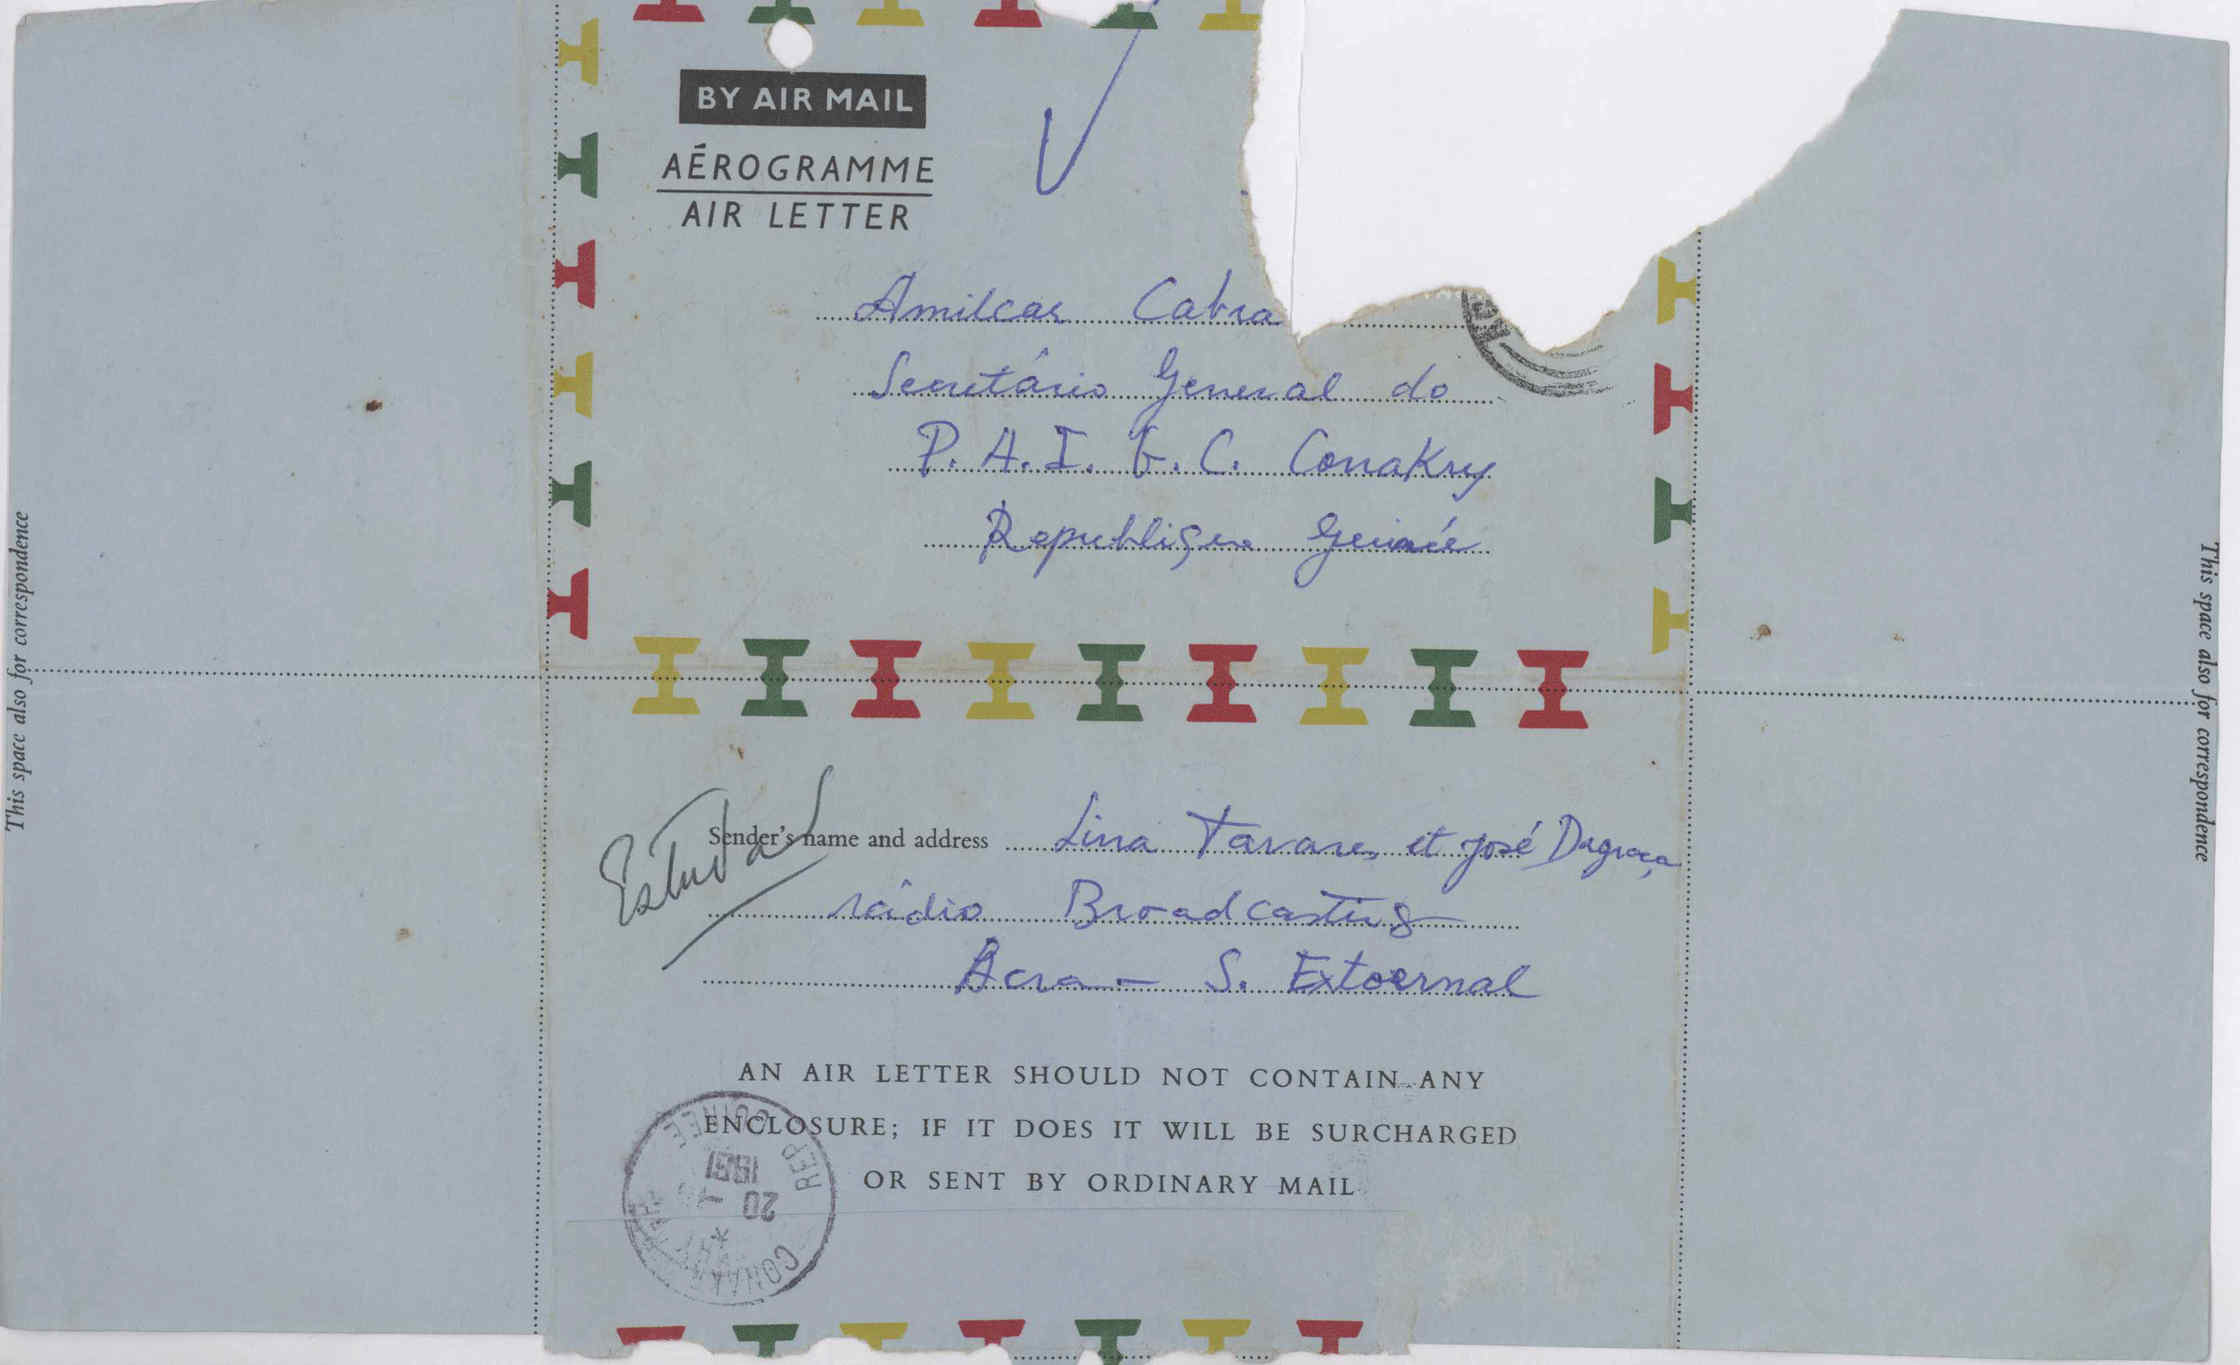 BY AIR MAIL
AÉROGRAMME
AIR LETTER
Amilcar Cabra
Secretário General do
P. A. I. G. C. Conakry
Republique Geuinée
This space also for correspondence
This space also for correspondence
Estudar
Sender's name and address Lina Tavares et José Dagraça
rádio Broadcasting
Acra - S. Extoernal
AN AIR LETTER SHOULD NOT CONTAIN ANY
ENCLOSURE; IF IT DOES IT WILL BE SURCHARGED
OR SENT BY ORDINARY MAIL
CONAKRY
20
1961
REP GUINEE